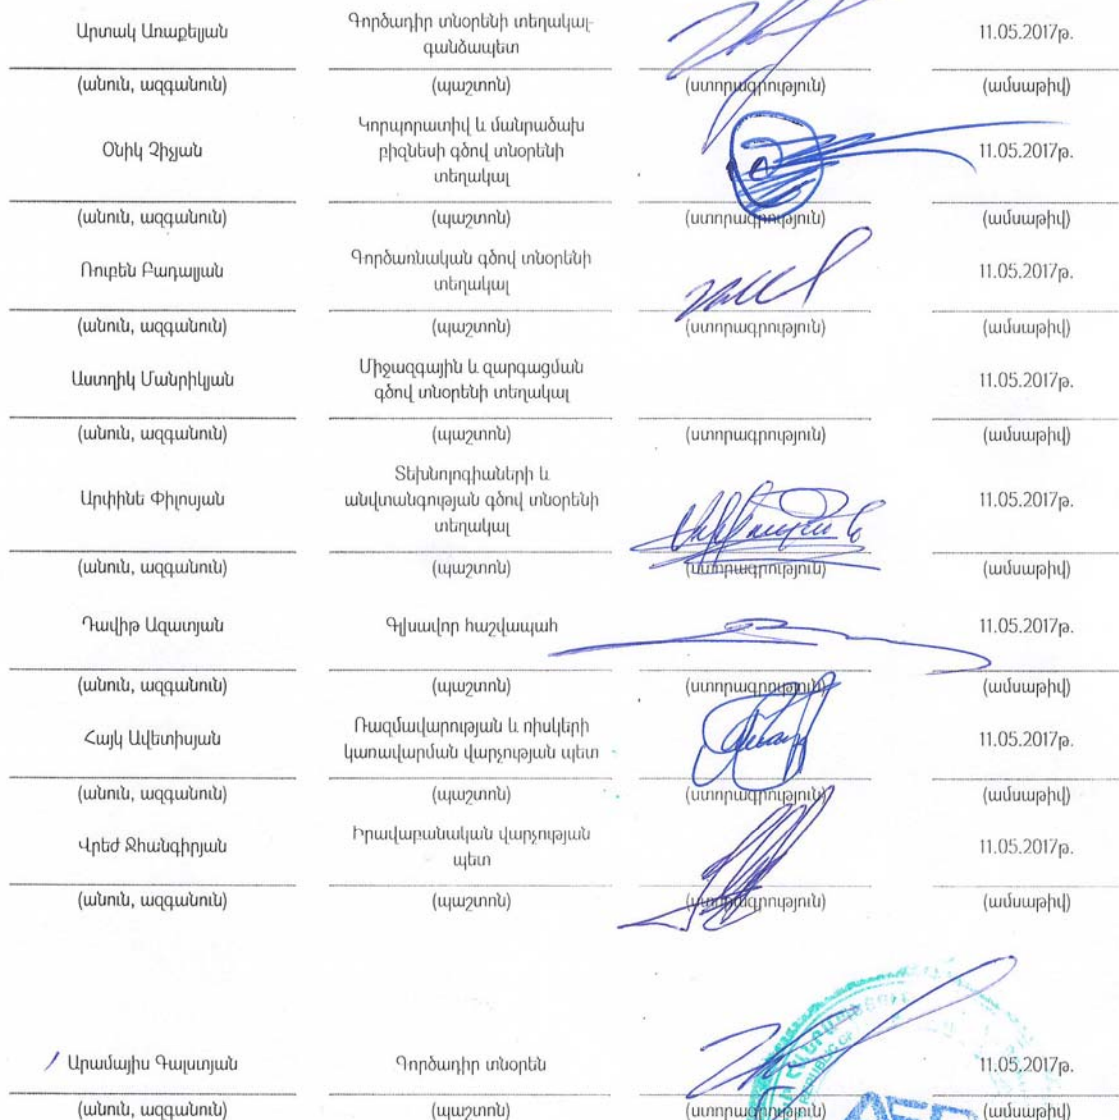 Արտակ Առաքելյան
Գործադիր տնօրենի տեղակալ-
գանձապետ
11.05.2017թ.
(անուն, ազգանուն) (պաշտոն) (ստորագրություն) (ամսաթիվ)
Օնիկ Չիչյան
Կորպորատիվ և մանրածախ
բիզնեսի գծով տնօրենի
տեղակալ
11.05.2017թ.
(անուն, ազգանուն) (պաշտոն) (ստորագրություն) (ամսաթիվ)
Ռուբեն Բադալյան
Գործառնական գծով տնօրենի
տեղակալ
11.05.2017թ.
(անուն, ազգանուն) (պաշտոն) (ստորագրություն) (ամսաթիվ)
Աստղիկ Մանրիկյան
Միջազգային և զարգացման
գծով տնօրենի տեղակալ
11.05.2017թ.
(անուն, ազգանուն) (պաշտոն) (ստորագրություն) (ամսաթիվ)
Արփինե Փիլոսյան
Տեխնոլոգիաների և
անվտանգության գծով տնօրենի
տեղակալ
11.05.2017թ.
(անուն, ազգանուն) (պաշտոն) (ստորագրություն) (ամսաթիվ)
Դավիթ Ազատյան
Գլխավոր հաշվապահ
11.05.2017թ.
(անուն, ազգանուն) (պաշտոն) (ստորագրություն) (ամսաթիվ)
Հայկ Ավետիսյան
Ռազմավարության և ռիսկերի
կառավարման վարչության պետ
11.05.2017թ.
(անուն, ազգանուն) (պաշտոն) (ստորագրություն) (ամսաթիվ)
Վրեժ Ջհանգիրյան
Իրավաբանական վարչության
պետ
11.05.2017թ.
(անուն, ազգանուն) (պաշտոն) (ստորագրություն) (ամսաթիվ)
Արամայիս Գալստյան
Գործադիր տնօրեն
11.05.2017թ.
REPUBLIC OF
(անուն, ազգանուն) (պաշտոն) (ստորագրություն) (ամսաթիվ)